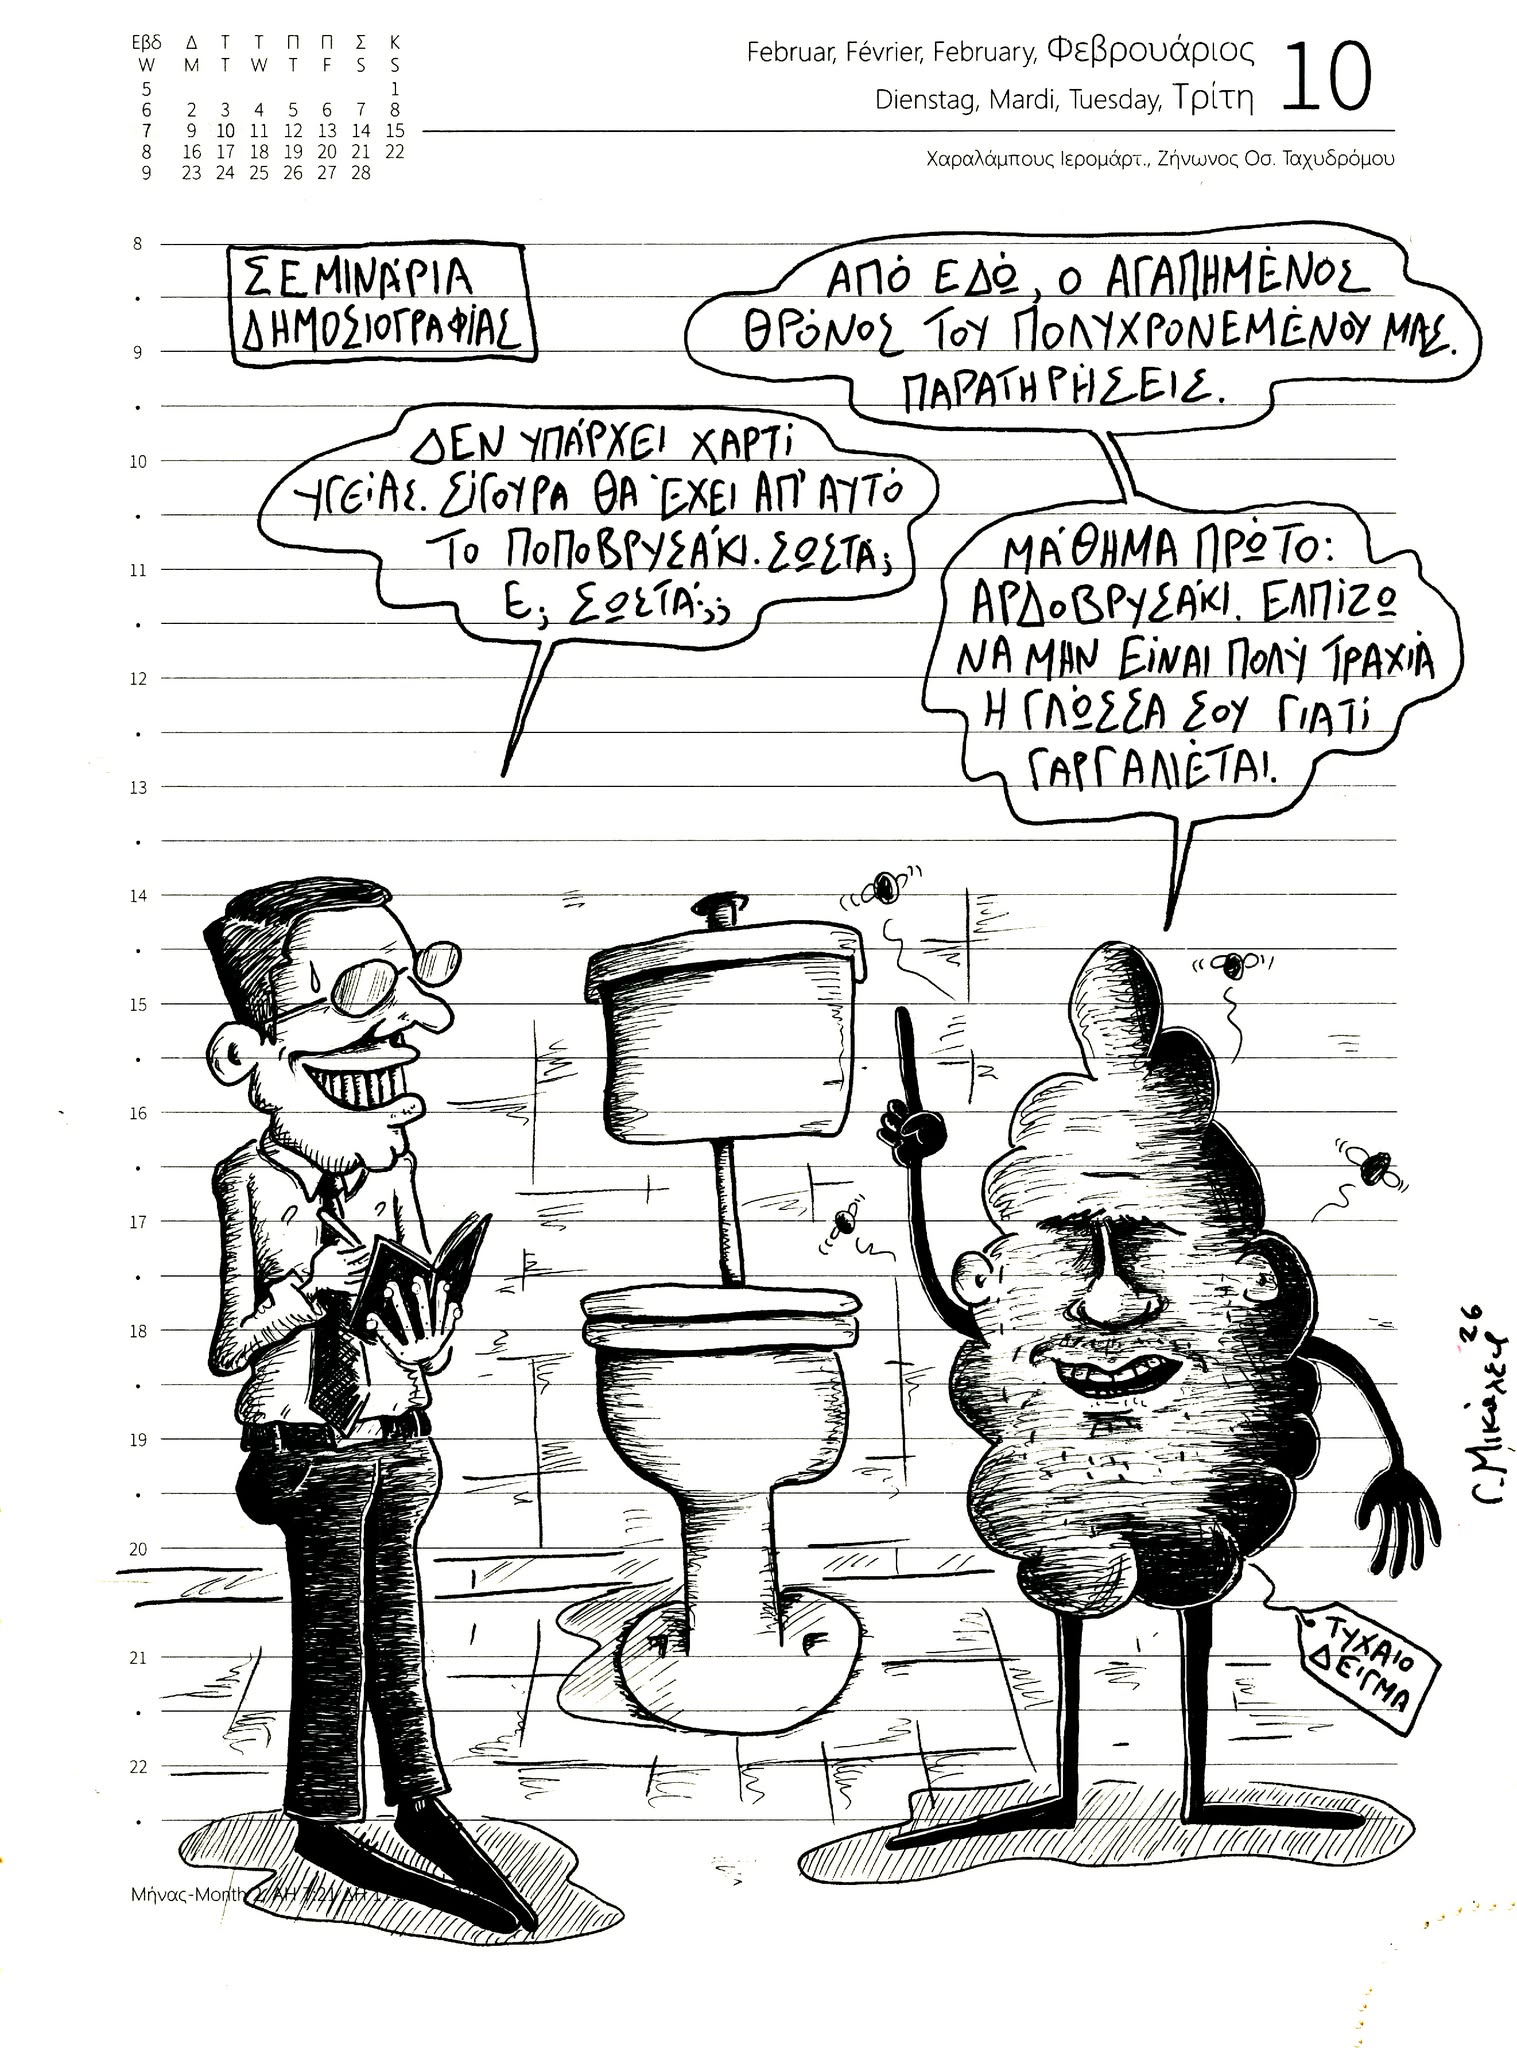 Εβδ Δ Τ Τ Π Π Σ Κ
W M T W T F S S
5 1
6 2 3 4 5 6 7 8
7 9 10 11 12 13 14 15
8 16 17 18 19 20 21 22
9 23 24 25 26 27 28
Februar, Février, February, Φεβρουάριος
Dienstag, Mardi, Tuesday, Τρίτη
10
Χαραλάμπους Ιερομάρτ., Ζήνωνος Οσ. Ταχυδρόμου
ΣΕΜΙΝΆΡΙΑ
ΔΗΜΟΣΙΟΓΡΑΦΊΑΣ
ΑΠΌ ΕΔΏ, Ο ΑΓΑΠΗΜΈΝΟΣ
ΘΡΌΝΟΣ ΤΟΥ ΠΟΛΥΧΡΟΝΕΜΈΝΟΥ ΜΑΣ.
ΠΑΡΑΤΗΡΉΣΕΙΣ.
ΔΕΝ ΥΠΆΡΧΕΙ ΧΑΡΤΊ
ΥΓΕΊΑΣ. ΣΊΓΟΥΡΑ ΘΑ ΈΧΕΙ ΑΠ' ΑΥΤΌ
ΤΟ ΠΟΠΟΒΡΥΣΆΚΙ. ΣΩΣΤΆ;
Ε; ΣΩΣΤΆ;;
ΜΆΘΗΜΑ ΠΡΏΤΟ:
ΑΡΔΟΒΡΥΣΆΚΙ. ΕΛΠΊΖΩ
ΝΑ ΜΗΝ ΕΊΝΑΙ ΠΟΛΎ ΤΡΑΧΙΆ
Η ΓΛΏΣΣΑ ΣΟΥ ΓΙΑΤΊ
ΓΑΡΓΑΛΙΈΤΑΙ.
8
9
10
11
12
13
14
15
16
17
18
19
20
21
22
ΤΥΧΑΙΟ
ΔΕΊΓΜΑ
Γ. Μικάλεφ
26
Μήνας-Month 2, ΑΗ 7:21